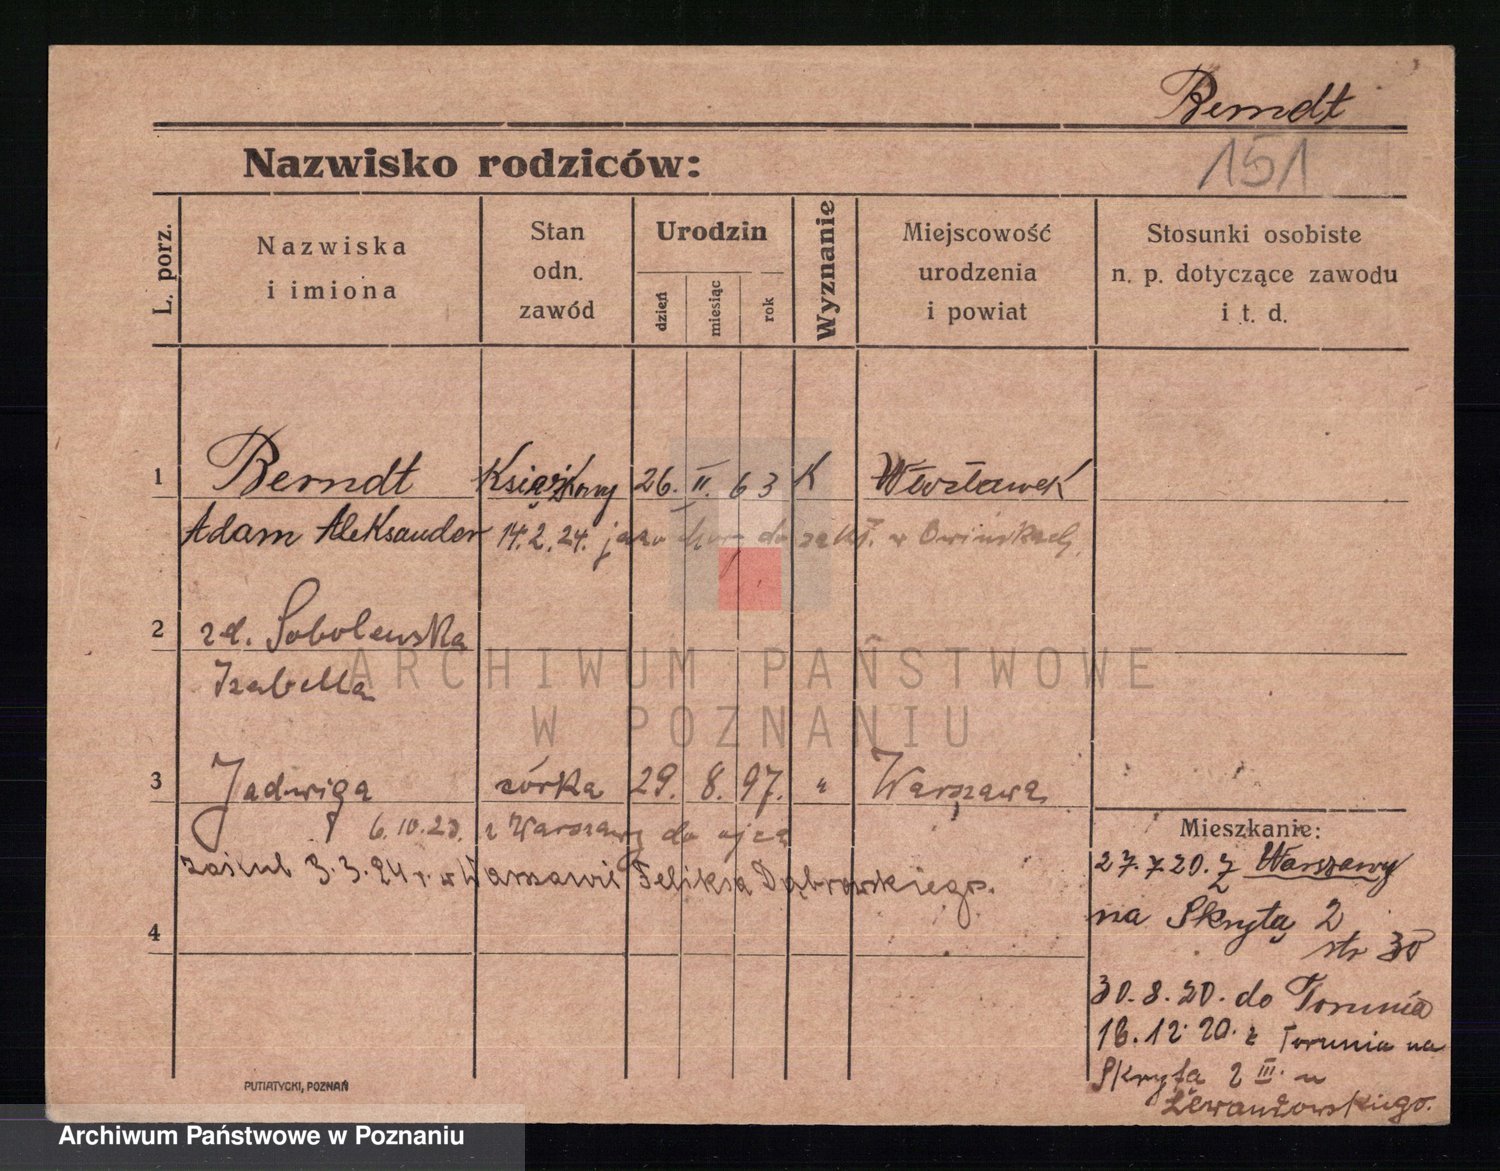 Berndt
Nazwisko rodziców:
151
L. porz.
Nazwiska
i imiona
Stan
odn.
zawód
Urodzin
dzień
miesiąc
rok
Wyznanie
Miejscowość
urodzenia
i powiat
Stosunki osobiste
n. p. dotyczące zawodu
i t. d.
1 Berndt Książkowy 26. II. 63 K Włocławek
Adam Aleksander 14.2.24. jako chory do zakł. w Owińskach
2 zd. Sobolewska
Izabella
3 Jadwiga córka 29. 8. 97. " Warszawa
6.10.23. z Warszawy do ojca
zaślub 3.3.24 r. w Warszawie Feliksa Dąbrowskiego.
4
Mieszkanie:
27.7.20. z Warszawy
na Skrytą 2
str 30
30.8.20. do Torunia
18.12.20. z Torunia na
Skryta 2 III. u
Lewandowskiego.
PUTIATYCKI, POZNAŃ
ARCHIWUM PAŃSTWOWE
W POZNANIU
Archiwum Państwowe w Poznaniu